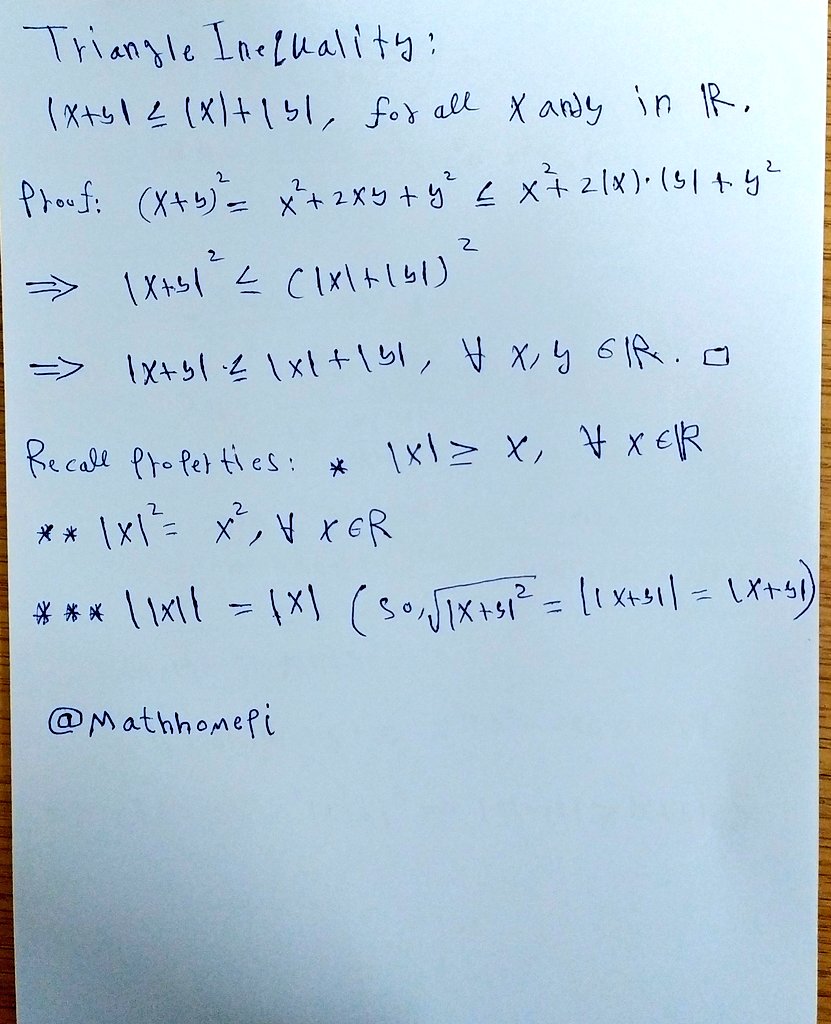 Triangle Inequality:
|x+y| ≤ |x|+|y|, for all x and y in ℝ.
Proof: (x+y)² = x²+2xy+y² ≤ x²+2|x|·|y|+y²
⇒ |x+y|² ≤ (|x|+|y|)²
⇒ |x+y| ≤ |x|+|y|, ∀ x,y ∈ ℝ. □
Recall Properties: * |x| ≥ x, ∀ x ∈ ℝ
** |x|² = x², ∀ x ∈ ℝ
*** ||x|| = |x| (so, √|x+y|² = ||x+y|| = |x+y|)
@Mathhomepi